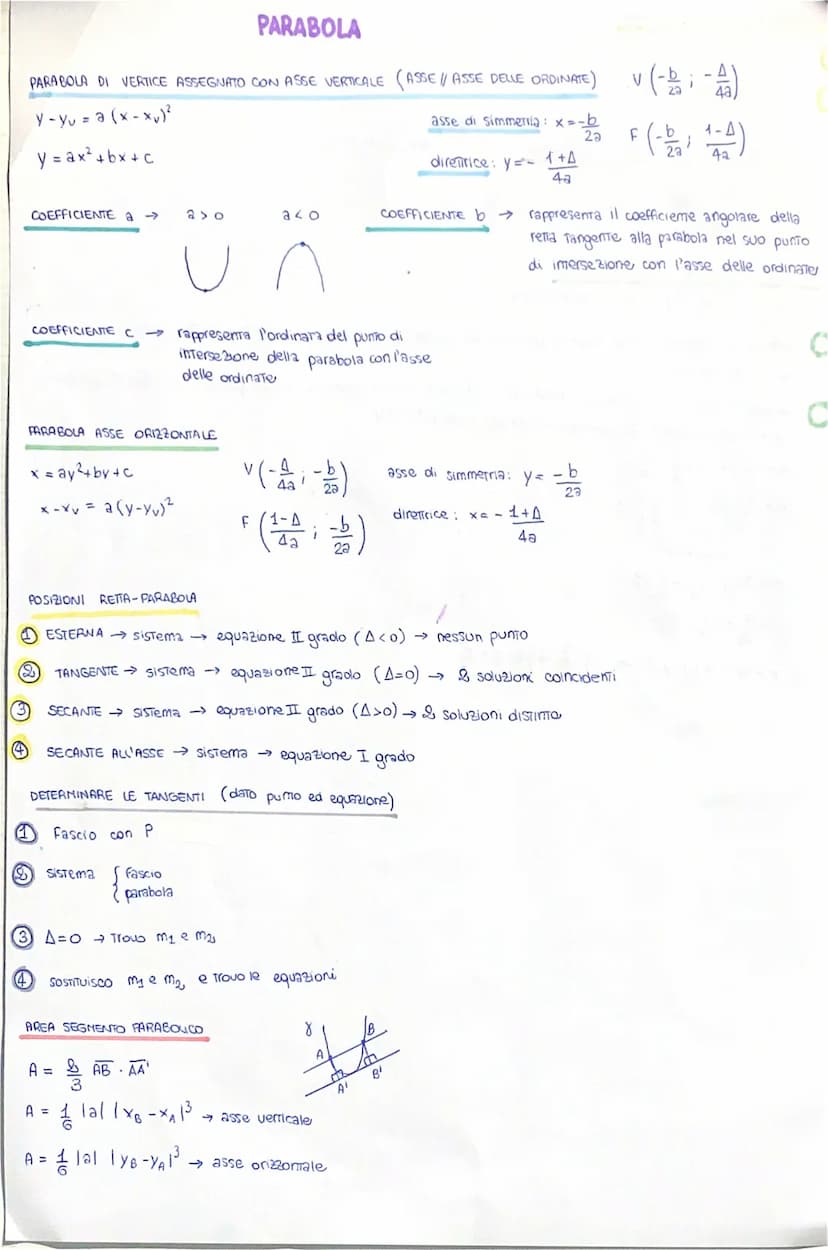 PARABOLA
PARABOLA DI VERTICE ASSEGNATO CON ASSE VERTICALE (ASSE // ASSE DELLE ORDINATE)
V (-b/2a ; -Δ/4a)
y - yᵥ = a (x - xᵥ)²
asse di simmetria: x = -b/2a
F (-b/2a ; 1-Δ/4a)
y = ax² + bx + c
direttrice: y = - 1+Δ/4a
COEFFICIENTE a → a > 0 a < 0
COEFFICIENTE b → rappresenta il coefficiente angolare della
retta tangente alla parabola nel suo punto
di intersezione con l'asse delle ordinate
COEFFICIENTE c → rappresenta l'ordinata del punto di
intersezione della parabola con l'asse
delle ordinate
PARABOLA ASSE ORIZZONTALE
x = ay² + by + c
V (-Δ/4a ; -b/2a)
asse di simmetria: y = -b/2a
x - xᵥ = a (y - yᵥ)²
F (1-Δ/4a ; -b/2a)
direttrice: x = - 1+Δ/4a
POSIZIONI RETTA-PARABOLA
① ESTERNA → sistema → equazione II grado (Δ<0) → nessun punto
② TANGENTE → sistema → equazione II grado (Δ=0) → 2 soluzioni coincidenti
③ SECANTE → sistema → equazione II grado (Δ>0) → 2 soluzioni distinte
④ SECANTE ALL'ASSE → sistema → equazione I grado
DETERMINARE LE TANGENTI (dato punto ed equazione)
① Fascio con P
② sistema { fascio
parabola
③ Δ=0 → trovo m₁ e m₂
④ sostituisco m₁ e m₂ e trovo le equazioni
AREA SEGMENTO PARABOLICO
γ A B A' B'
A = 2/3 A̅B̅ · A̅A̅'
A = 1/6 |a| |x_B - x_A|³ → asse verticale
A = 1/6 |a| |y_B - y_A|³ → asse orizzontale